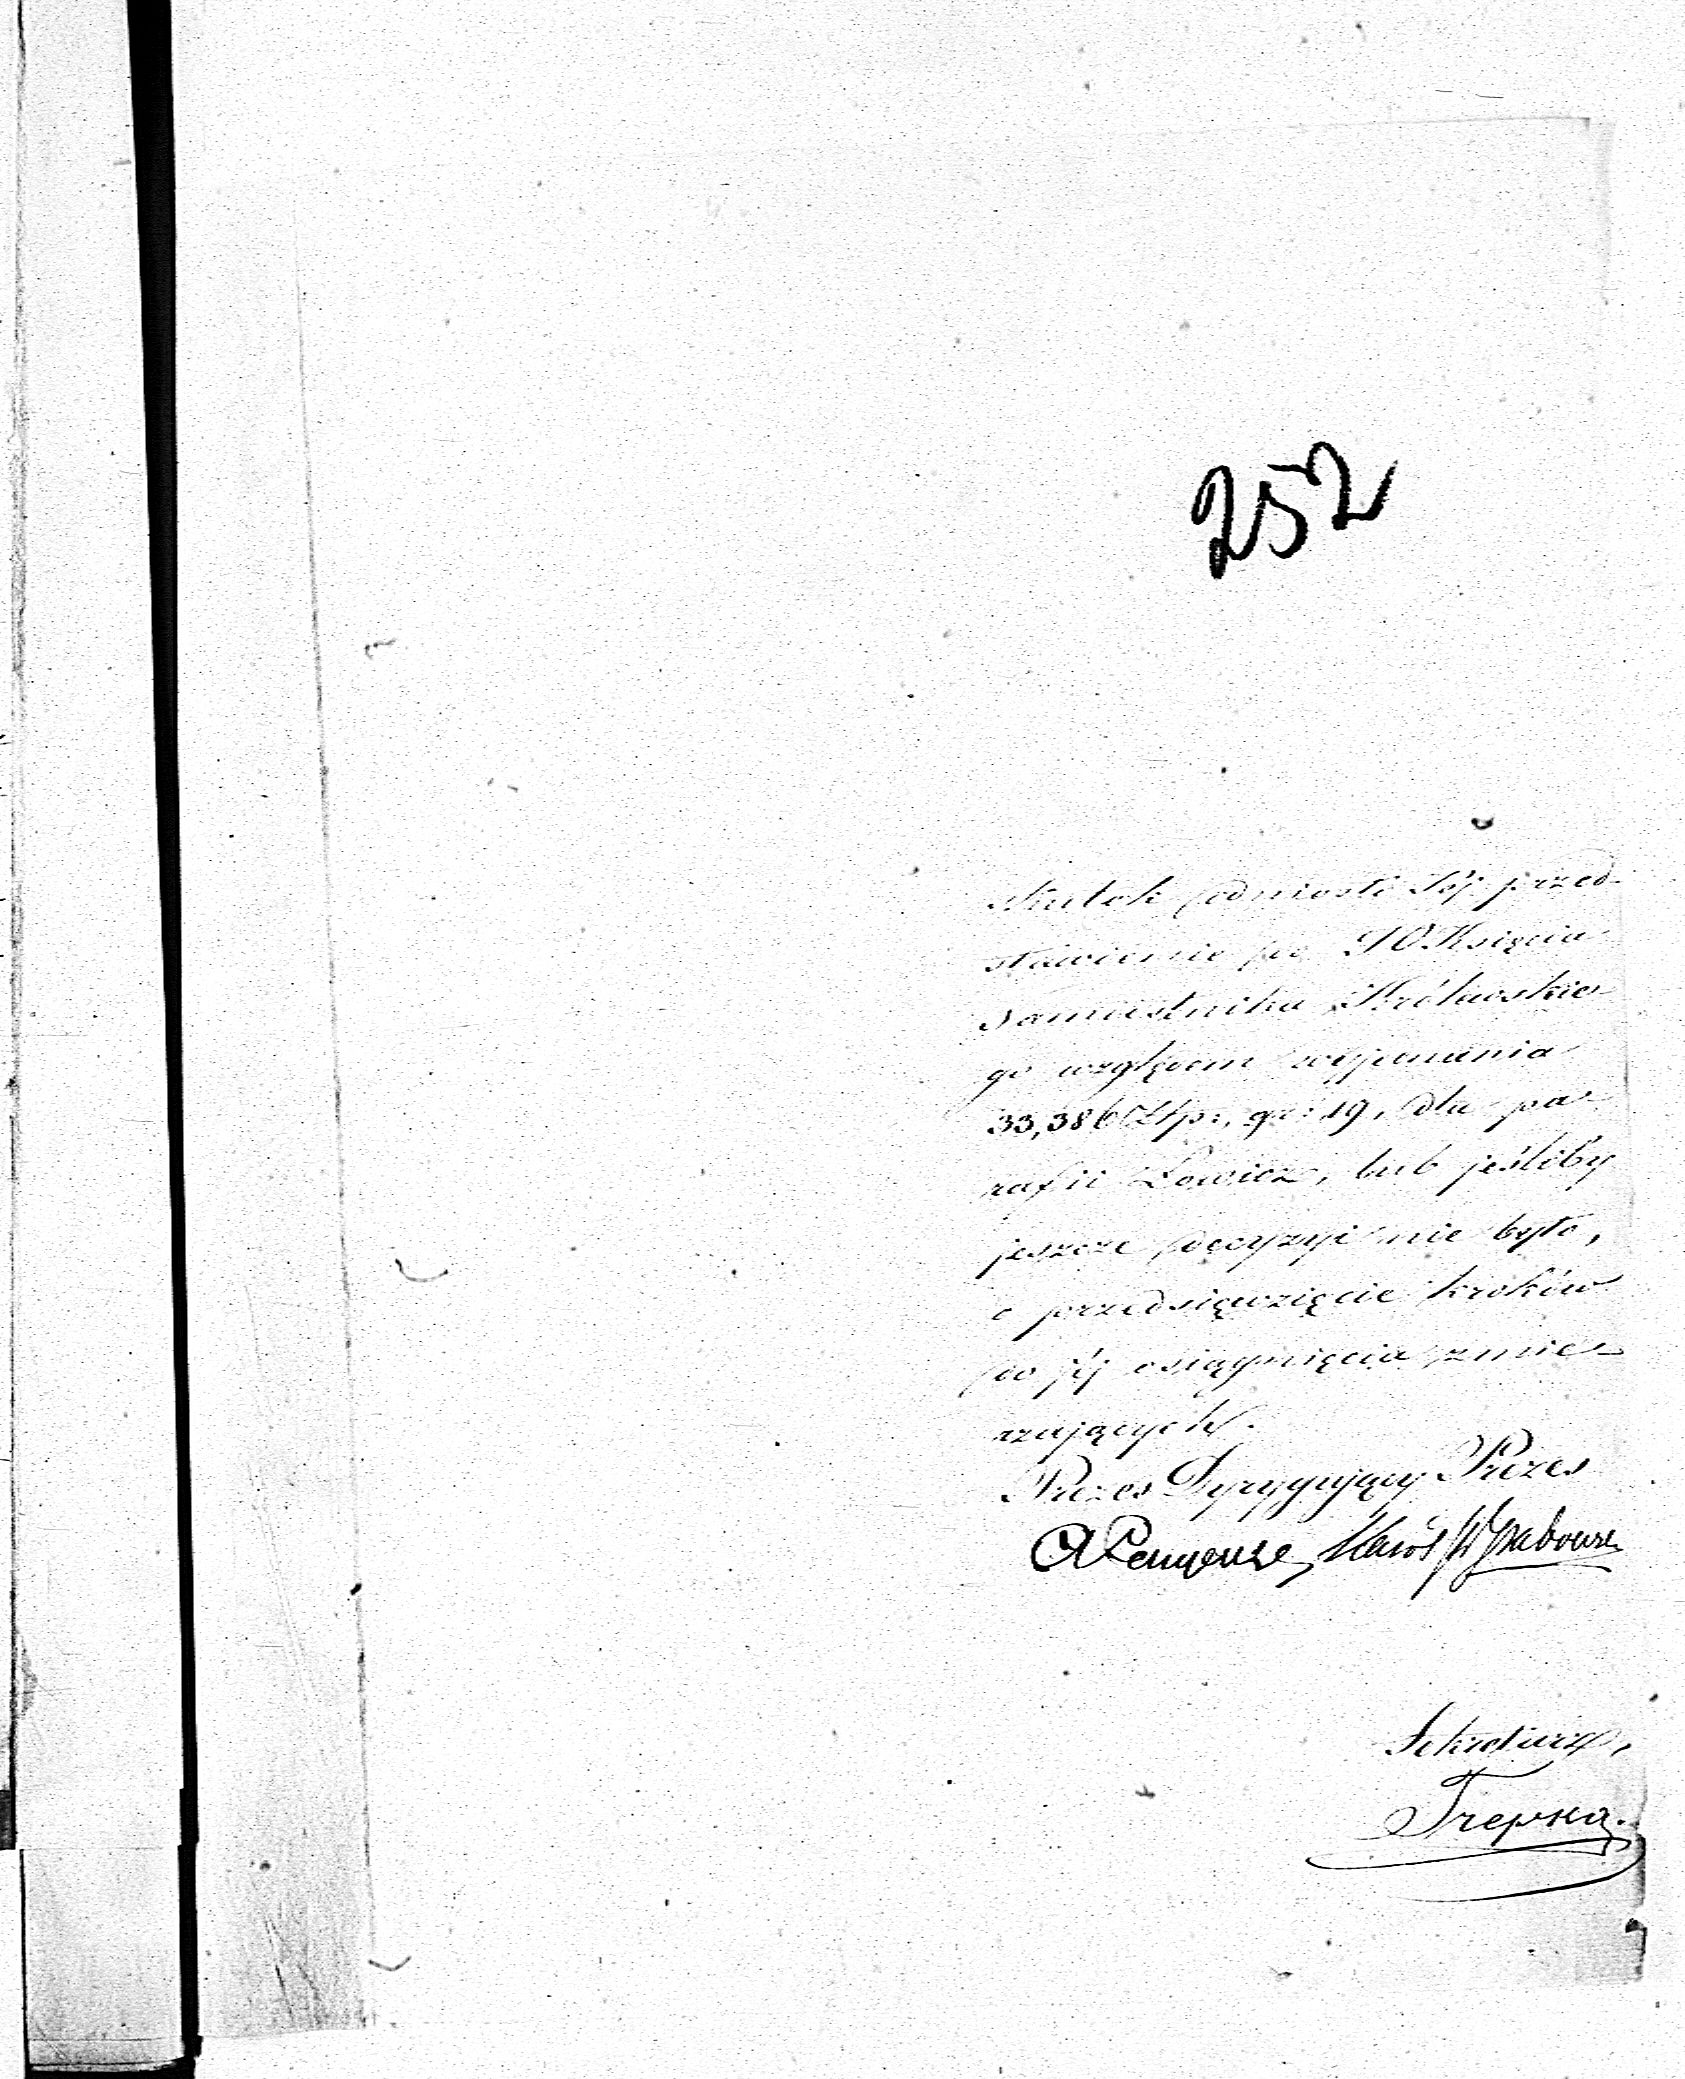 252
skutek odniosło Jéj przed-
stawienie po JO Księcia
Namiestnika Królewskie-
go względem wyjednania
33,386 Złp:, gr: 19, dla pa-
rafii Łowicz, lub jeśliby
jeszcze decyzyi nie było,
o przedsięwzięcie kroków
do jéj osiągnięcia zmie-
rzających.
Prezes Dyrygujący Prezes
Sekretarz,
Trepka.